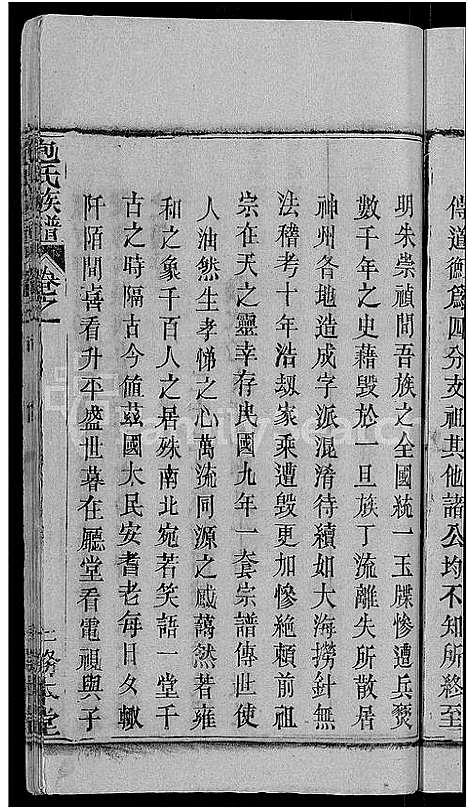 傳道衡爲四分支祖其他諸公均不知所終至
明朱崇禎間吾族之全國統一玉牒慘遭兵燹
數千年之史藉毀於一旦族丁流離失所散居
神州各地造成字派混淆待續如大海撈針無
法稽考十年浩劫家乘遭毀更加慘絶賴前祖
宗在天之靈幸存民國九年一套宗譜傳世使
人油然生孝悌之心萬流同源之感萬然若雍
和之象千百人之居殊南北宛若笑語一堂千
古之時隔古今值茲國太民安耆老每日夕輙
阡陌間喜看升平盛世暮在廳堂看電視與子
包氏族譜 卷之一